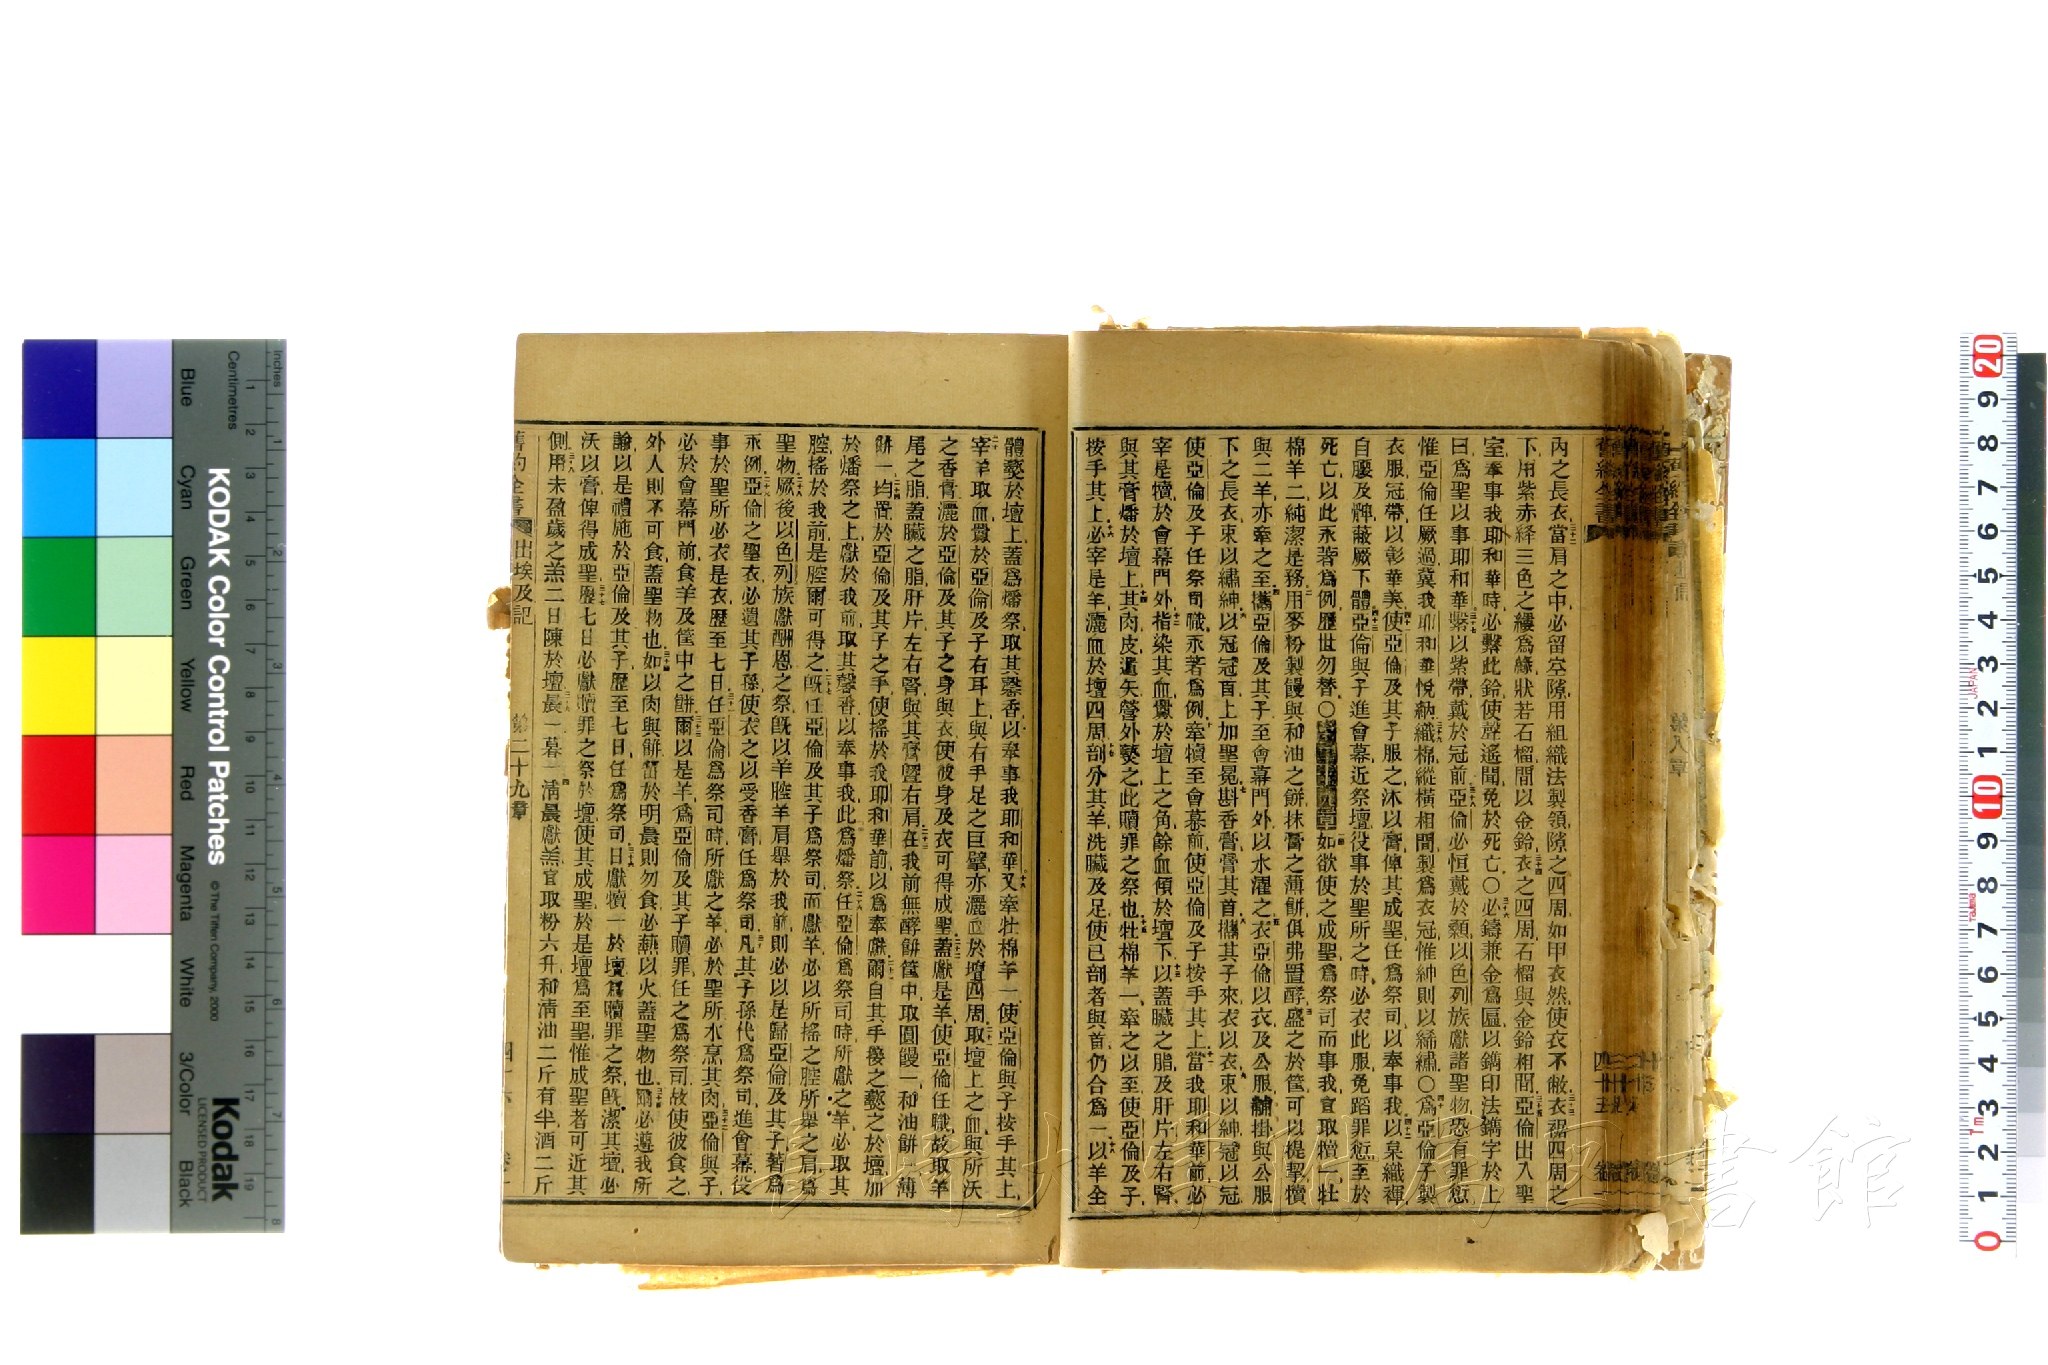 內之長衣當肩之中必留空隙用組織法製領隙之四周如甲衣然使衣不敝衣裾四周之
下用紫赤絳三色之縷爲緣狀若石榴間以金鈴衣之四周石榴與金鈴相間亞倫出入聖
室奉事我耶和華時必繫此鈴使聲遙聞免於死亡○必鑄兼金爲區以鐫印法鐫字於上
曰爲聖以事耶和華繫以紫帶戴於冠前亞倫必恒戴於顙以色列族獻諸聖物恐有罪愆
惟亞倫任厥過冀我耶和華悅納織棉縱橫相間製爲衣冠惟紳則以絺繡○爲亞倫子製
衣服冠帶以彰華美使亞倫及其子服之沐以膏俾其成聖任爲祭司以奉事我以枲織褌
自腰及髀蔽厥下體亞倫與子進會幕近祭壇役事於聖所之時必衣此服免蹈罪愆至於
死亡以此永著爲例歷世勿替○如欲使之成聖爲祭司而事我宜取犢一牡
棉羊二純潔是務用麥粉製饅與和油之餅抹膏之薄餅俱弗置酵盛之於筐可以提挈犢
與二羊亦牽之至攜亞倫及其子至會幕門外以水濯之衣亞倫以衣及公服黼掛與公服
下之長衣束以繡紳以冠冠首上加聖冕斟香膏膏其首攜其子來衣以衣束以紳冠以冠
使亞倫及子任祭司職永著爲例牽犢至會幕前使亞倫及子按手其上當我耶和華前必
宰是犢於會幕門外指染其血釁於壇上之角餘血傾於壇下以蓋臟之脂及肝片左右腎
與其膏燔於壇上其肉皮遺矢營外爇之此贖罪之祭也牡棉羊一牽之以至使亞倫及子
按手其上必宰是羊灑血於壇四周剖分其羊洗臟及足使已剖者與首仍合爲一以羊全
體爇於壇上蓋爲燔祭取其馨香以奉事我耶和華又牽牡棉羊一使亞倫與子按手其上
宰羊取血釁於亞倫及子右耳上與右手足之巨擘亦灑血於壇四周取壇上之血與所沃
之香膏灑於亞倫及其子之身與衣使彼身及衣可得成聖蓋獻是羊使亞倫任職故取羊
尾之脂蓋臟之脂肝片左右腎與其膏曁右肩在我前無酵餅筐中取圓饅一和油餅一薄
餅一均置於亞倫及其子之手使搖於我耶和華前以爲奉獻爾自其手接之爇之於壇加
於燔祭之上獻於我前取其馨香以奉事我此爲燔祭任亞倫爲祭司時所獻之羊必取其
腔搖於我前是腔爾可得之旣任亞倫及其子爲祭司而獻羊必以所搖之腔所舉之肩爲
聖物厥後以色列族獻酬恩之祭旣以羊腔羊肩舉於我前則必以是歸亞倫及其子著爲
永例亞倫之聖衣必遺其子孫使衣之以受香膏任爲祭司凡其子孫代爲祭司進會幕役
事於聖所必衣是衣歷至七日任亞倫爲祭司時所獻之羊必於聖所水烹其肉亞倫與子
必於會幕門前食羊及筐中之餅爾以是羊爲亞倫及其子贖罪任之爲祭司故使彼食之
外人則不可食蓋聖物也如以肉與餅留於明晨則勿食必燕以火蓋聖物也爾必遵我所
諭以是禮施於亞倫及其子歷至七日任爲祭司日獻犢一於壇爲贖罪之祭旣潔其壇必
沃以膏俾得成聖歷七日必獻贖罪之祭於壇使其成聖於是壇爲至聖惟成聖者可近其
側用未盈歲之羔二日陳於壇晨一暮一淸晨獻羔宜取粉六升和淸油二斤有半酒二斤
舊約全書 出埃及記 第二十九章 四十六
KODAK Color Control Patches
© The Tiffen Company, 2000
Kodak
LICENSED PRODUCT
Inches
Centimetres
Blue
Cyan
Green
Yellow
Red
Magenta
White
3/Color
Black
JAPAN